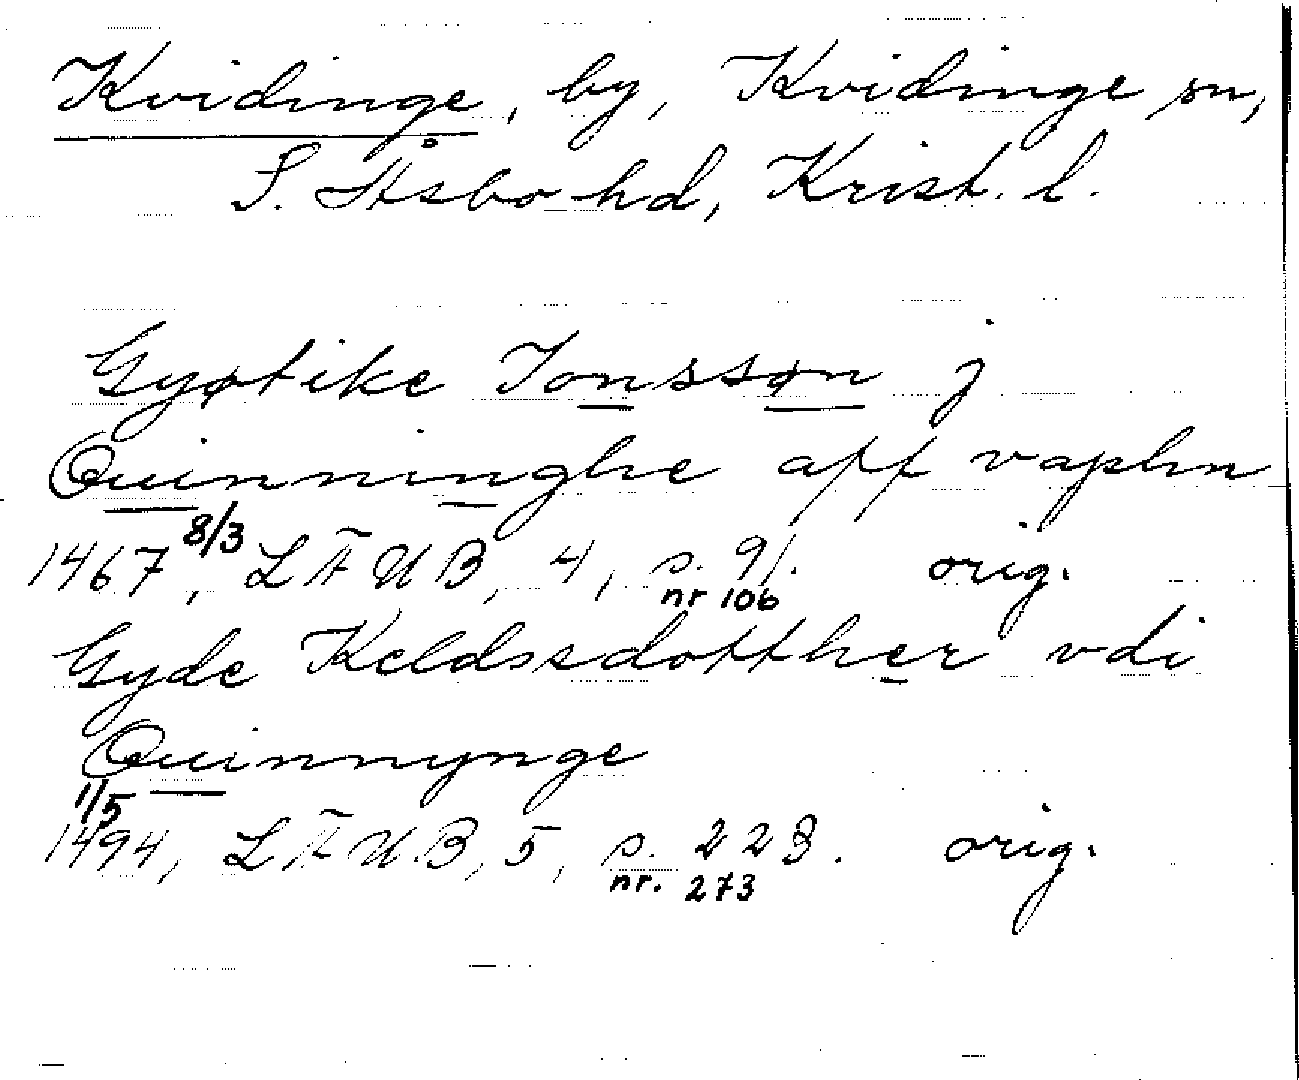 Kvidinge, by, Kvidinge sn,
S. Åsbo hd, Krist. l.
Gyøtike Jonssøn j
Quinninghe aff vaphn
1467 8/3, LÄUB, 4, s. 91. orig.
nr 106
Gyde Keldssdotther vdi
Quinnynge
1/5
1494, LÄUB, 5, s. 223. orig.
nr. 273